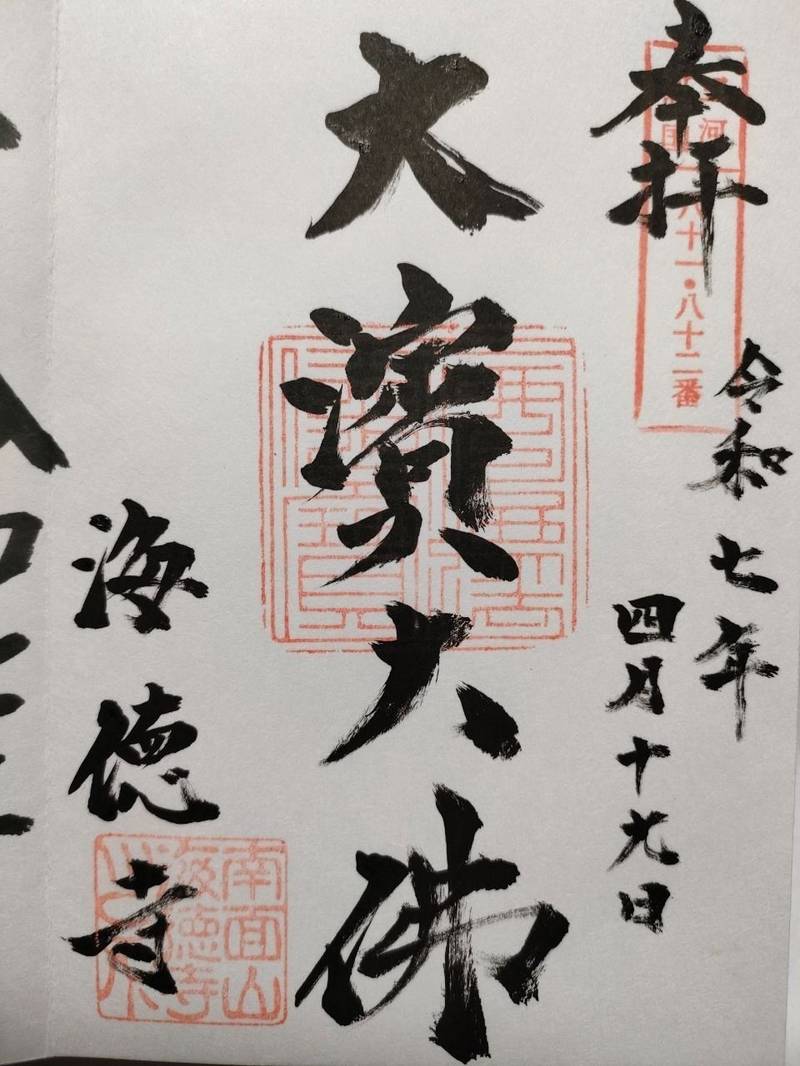 奉拝
河
国
八十一・八十二番
令和七年
四月十九日
大濱大佛
海徳寺
南面山
海徳寺
之印